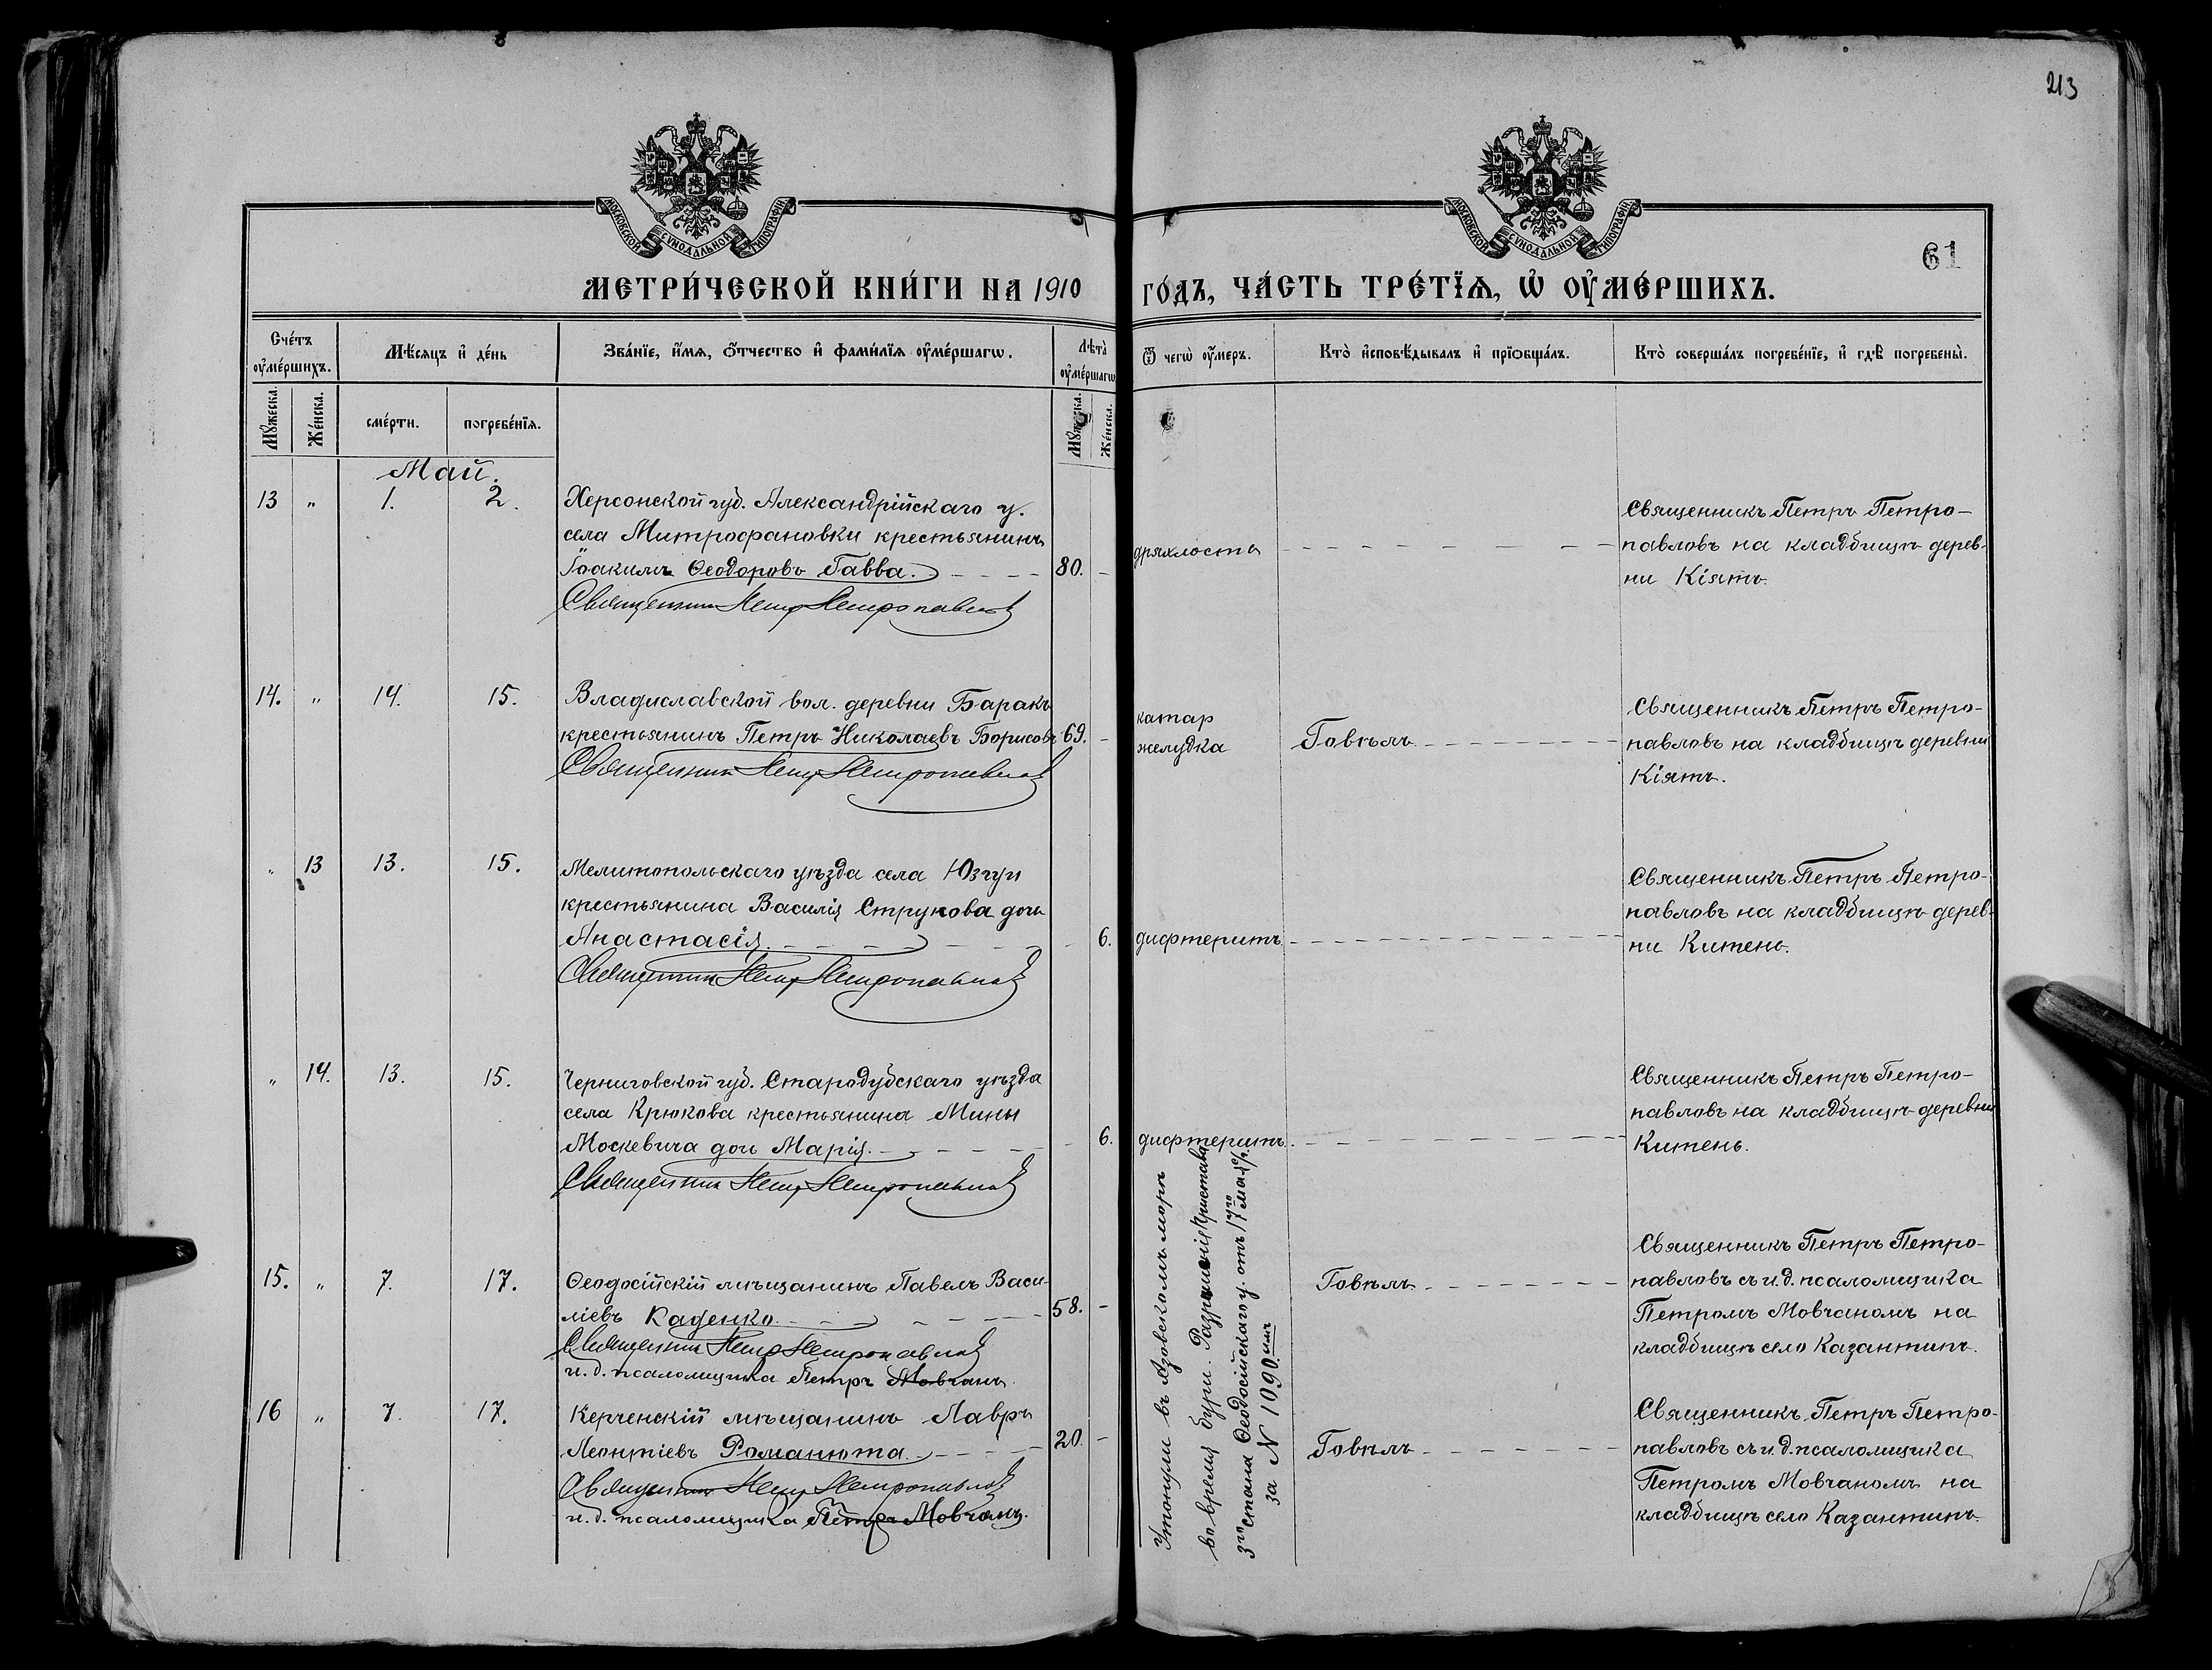 213
МОСКОВСКОЙ СѴНОДАЛЬНОЙ ТИПОГРАФІИ
МОСКОВСКОЙ СѴНОДАЛЬНОЙ ТИПОГРАФІИ
61
МЕТРИ́ЧЕСКОЙ КНИ́ГИ НА 1910 ГО́ДЪ, ЧА́СТЬ ТРЕ́ТЇѦ, Ѡ҆ ОУ҆МЕ́РШИХЪ.
Сче́тъ оу҆ме́ршихъ.
Мѣ́сяцъ и҆ де́нь
Зва́нїе, и҆́мя, ѻ҆́тчество и҆ фами́лїя оу҆ме́ршагѡ.
Лѣта̀ оу҆ме́ршагѡ
Ѿ чегѡ̀ оу҆́меръ.
Кто̀ и҆сповѣ́дывалъ и҆ прїѡбща́лъ.
Кто̀ соверша́лъ погребе́нїе, и҆ гдѣ̀ погребены̀.
Мꙋ́жеска.
Же́нска.
сме́рти.
погребе́нїя.
Мꙋ́жеска.
Же́нска.
Май.
13 " 1. 2.
Херсонской губ. Александрійскаго у.
села Митрофановки крестьянинъ
Іоакимъ Ѳеодоровъ Гавва. 80. -
Священникъ Петръ Петропавловъ
дряхлость
Священникъ Петръ Петро-
павловъ на кладбищѣ дерев-
ни Кіятъ.
14. " 14. 15.
Владиславской вол. деревни Баракъ
крестьянинъ Петръ Николаевъ Борисовъ 69. -
Священникъ Петръ Петропавловъ
катар
желудка
Говѣлъ
Священникъ Петръ Петро-
павловъ на кладбищѣ деревни
Кіятъ.
" 13 13. 15.
Мелитопольскаго уѣзда села Юзгун
крестьянина Василія Струкова дочь
Анастасія. - 6.
Священникъ Петръ Петропавловъ
дифтеритъ
Священникъ Петръ Петро-
павловъ на кладбищѣ дерев-
ни Китень.
" 14. 13. 15.
Черниговской губ. Стародубскаго уѣзда
села Крюкова крестьянина Мины
Москевича дочь Марія. - 6.
Священникъ Петръ Петропавловъ
дифтеритъ.
Священникъ Петръ Петро-
павловъ на кладбищѣ деревни
Китень.
15. " 7. 17.
Ѳеодосійскій мѣщанинъ Павелъ Васи-
ліевъ Каденко. 58. -
Священникъ Петръ Петропавловъ
и. д. псаломщика Петръ Мовчанъ.
Утонули въ Азовскомъ морѣ
во время бури. Разрѣшенія Пристава
3го стана Ѳеодосійскаго у. отъ 17го мая с/г.
за N 1090.имъ
Говѣлъ
Священникъ Петръ Петро-
павловъ съ и. д. псаломщика
Петромъ Мовчаномъ на
кладбищѣ село Казантипъ.
16 " 7. 17.
Керченскій мѣщанинъ Лавръ
Леонтіевъ Романюта. 20. -
Священникъ Петръ Петропавловъ
и. д. псаломщика Петръ Мовчанъ.
Говѣлъ
Священникъ Петръ Петро-
павловъ съ и. д. псаломщика
Петромъ Мовчаномъ на
кладбищѣ село Казантипъ.